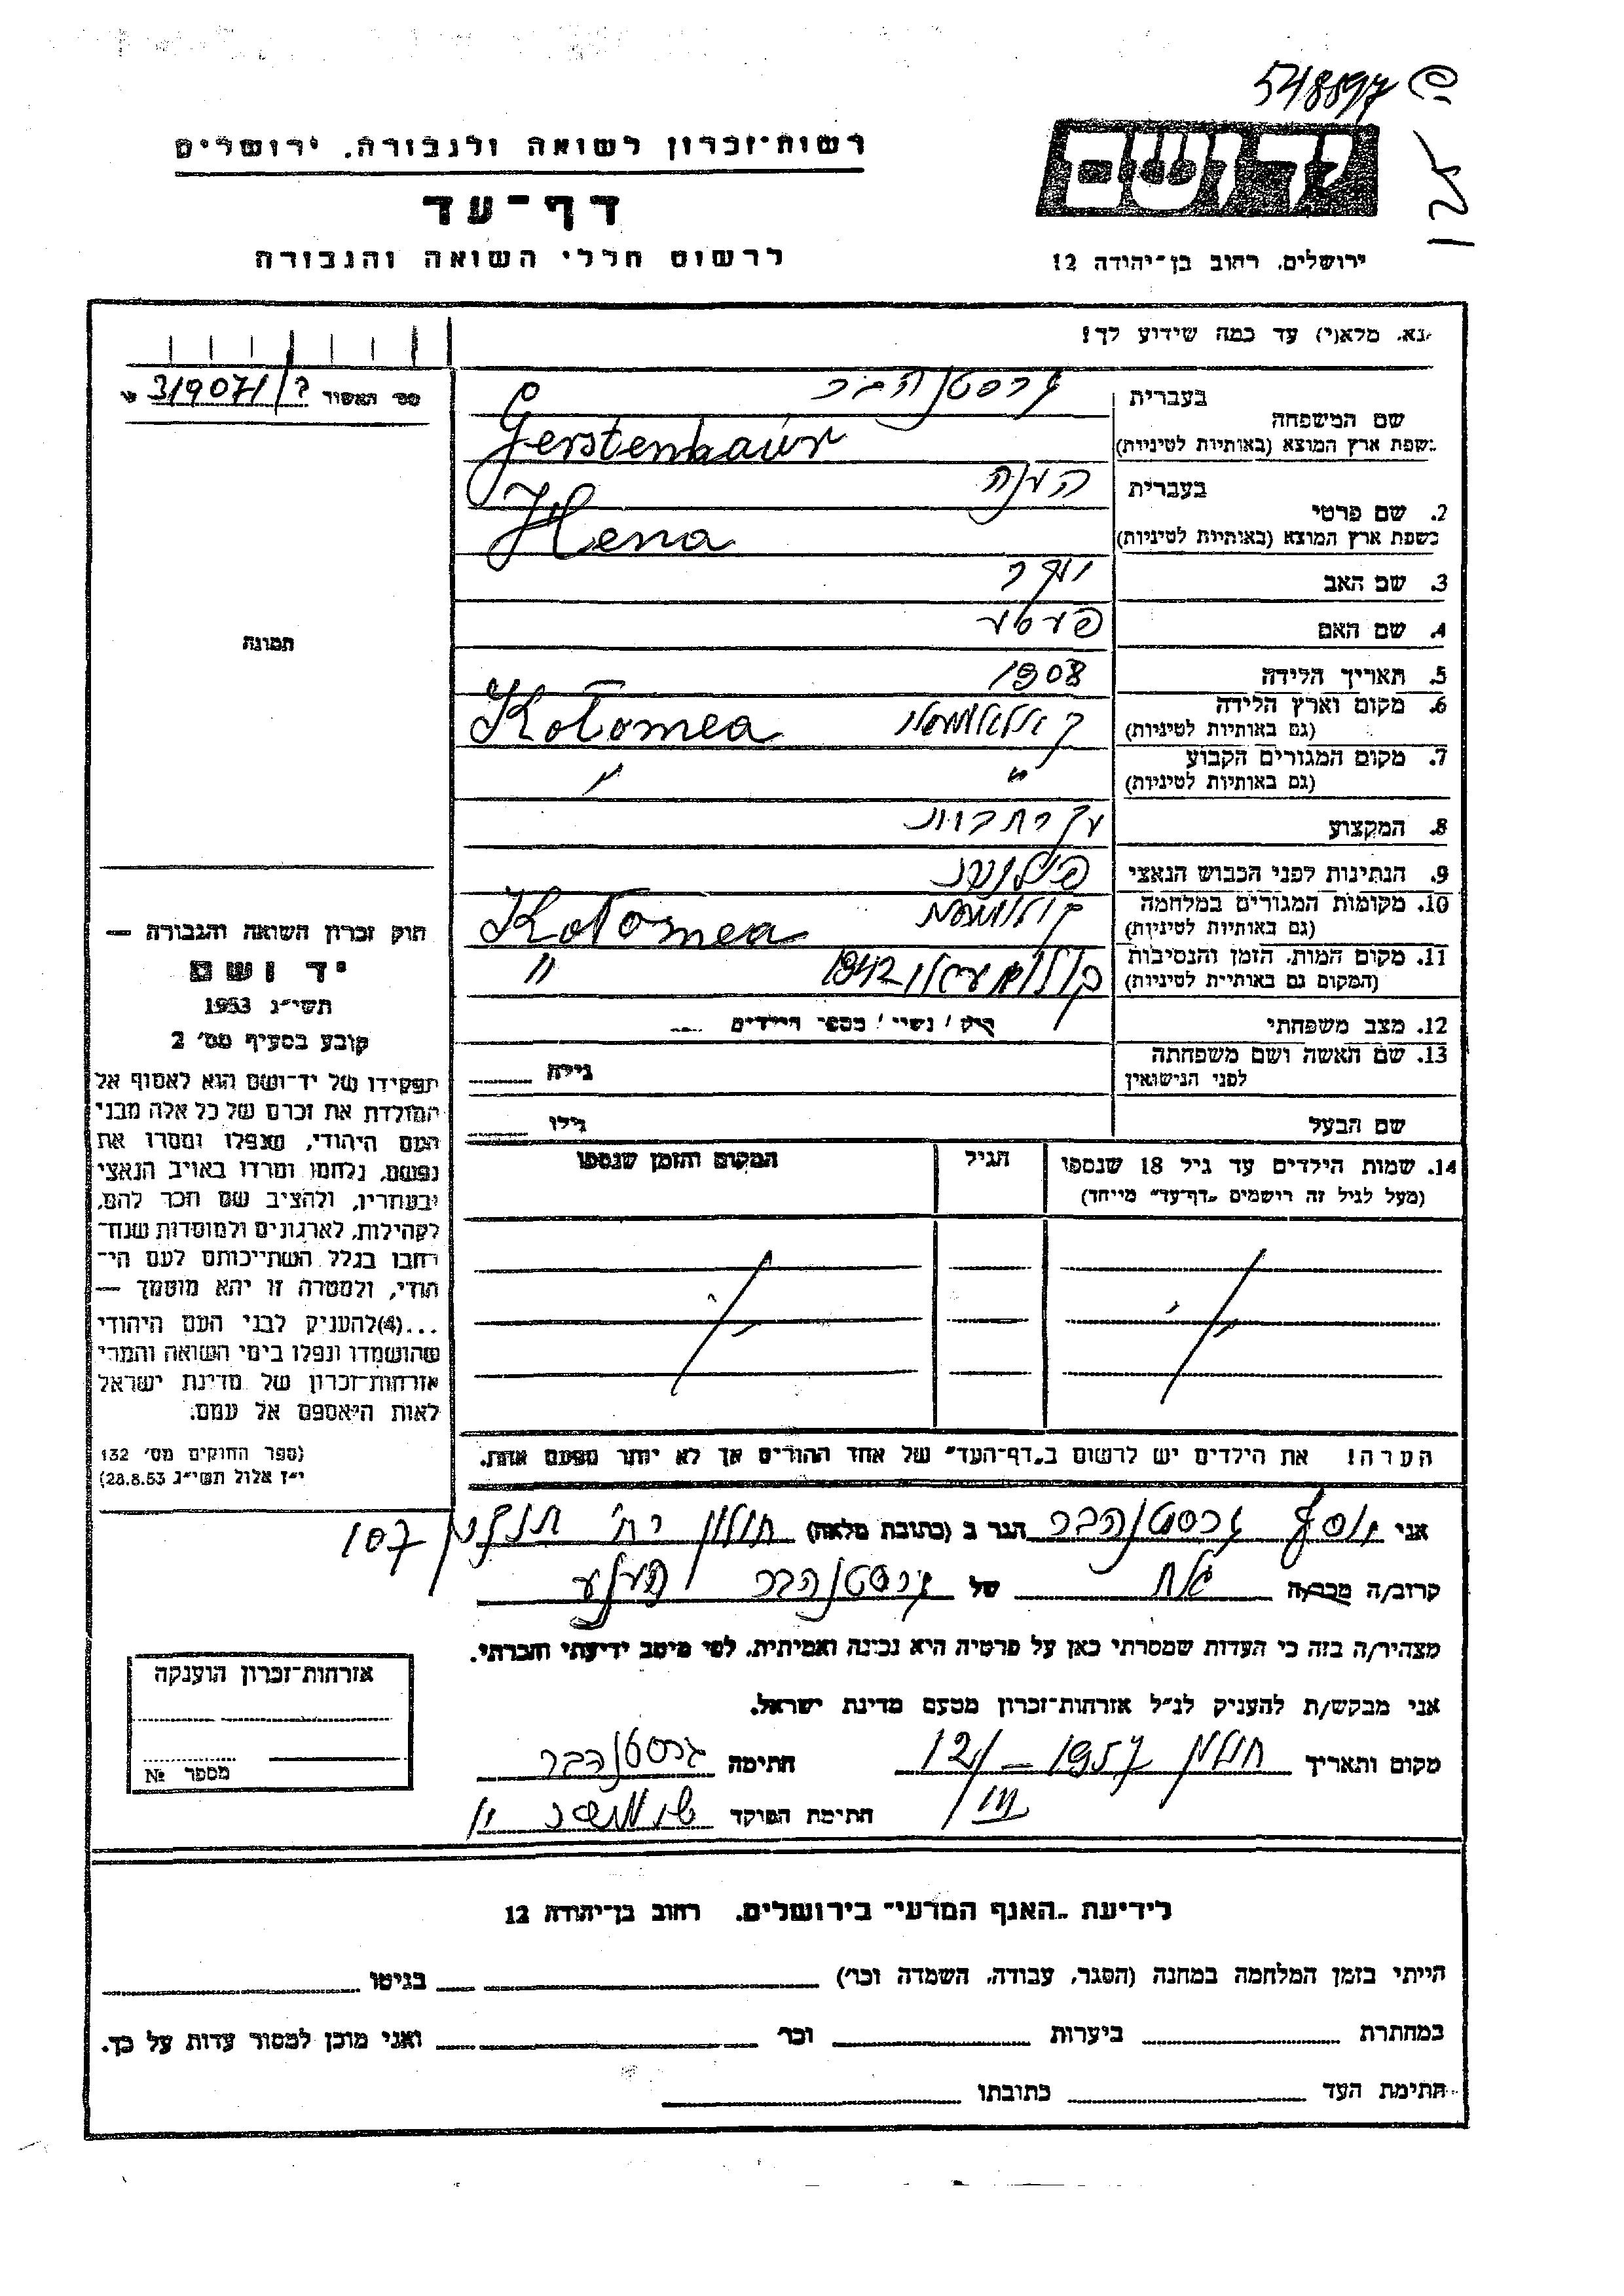 548897
רשות-זכרון לשואה ולגבורה. ירושלים
דף-עד
לרשום חללי השואה והגבורה
ירושלים, רחוב בן-יהודה 12
נא. מלא(י) עד כמה שידוע לך!
מס' האשור 319071
שם המשפחה
בעברית גרסטנהבר
בשפת ארץ המוצא (באותיות לטיניות) Gerstenhaur
2. שם פרטי
בעברית הענה
בשפת ארץ המוצא (באותיות לטיניות) Hena
3. שם האב
4. שם האם
5. תאריך הלידה 1908
6. מקום וארץ הלידה
(גם באותיות לטיניות) Kolomea
7. מקום המגורים הקבוע " "
(גם באותיות לטיניות)
8. המקצוע עקרת בית
9. הנתינות לפני הכבוש הנאצי
10. מקומות המגורים במלחמה
(גם באותיות לטיניות) Kolomea
11. מקום המות, הזמן והנסיבות 1942 "
(המקום גם באותיית לטיניות)
12. מצב משפחתי רוק / נשוי / מספר הילדים
13. שם האשה ושם משפחתה
לפני הנישואין גילה
שם הבעל גילו
14. שמות הילדים עד גיל 18 שנספו הגיל המקום והזמן שנספו
(מעל לגיל זה רושמים "דף-עד" מיוחד)
הערה! את הילדים יש לרשום ב"דף-העד" של אחד ההורים אך לא יותר מפעם אחת.
תמונה
חוק זכרון השואה והגבורה —
יד ושם
תשי"ג 1953
קובע בסעיף מס' 2
תפקידו של יד-ושם הוא לאסוף אל
המולדת את זכרם של כל אלה מבני
העם היהודי, שנפלו ומסרו את
נפשם, נלחמו ומרדו באויב הנאצי
ובעוזריו, ולהציב שם וזכר להם,
לקהילות, לארגונים ולמוסדות שנח-
רבו בגלל השתייכותם לעם הי-
הודי, ולמטרה זו יהא מוסמך —
...(4)להעניק לבני העם היהודי
שהושמדו ונפלו בימי השואה והמרי
אזרחות-זכרון של מדינת ישראל
לאות היאספם אל עמם.
(ספר החוקים מס' 132
י"ז אלול תשי"ג 28.8.53)
אני יוסף גרסטנהבר הגר ב (כתובת מלאה) חולון רח' 107
קרוב/ה מכר/ה אח של גרסטנהבר
מצהיר/ה בזה כי העדות שמסרתי כאן על פרטיה היא נכונה ואמיתית, לפי מיטב ידיעתי והכרתי.
אני מבקש/ת להעניק לנ"ל אזרחות-זכרון מטעם מדינת ישראל.
מקום ותאריך חולון 1957 – 12/VII חתימה גרסטנהבר
חתימת הפוקד
אזרחות-זכרון הוענקה
מספר №
לידיעת "האגף המדעי" בירושלים. רחוב בן-יהודה 12
הייתי בזמן המלחמה במחנה (הסגר, עבודה, השמדה וכר') בגיטו
במחתרת ביערות וכר' ואני מוכן למסור עדות על כך.
חתימת העד כתובתו